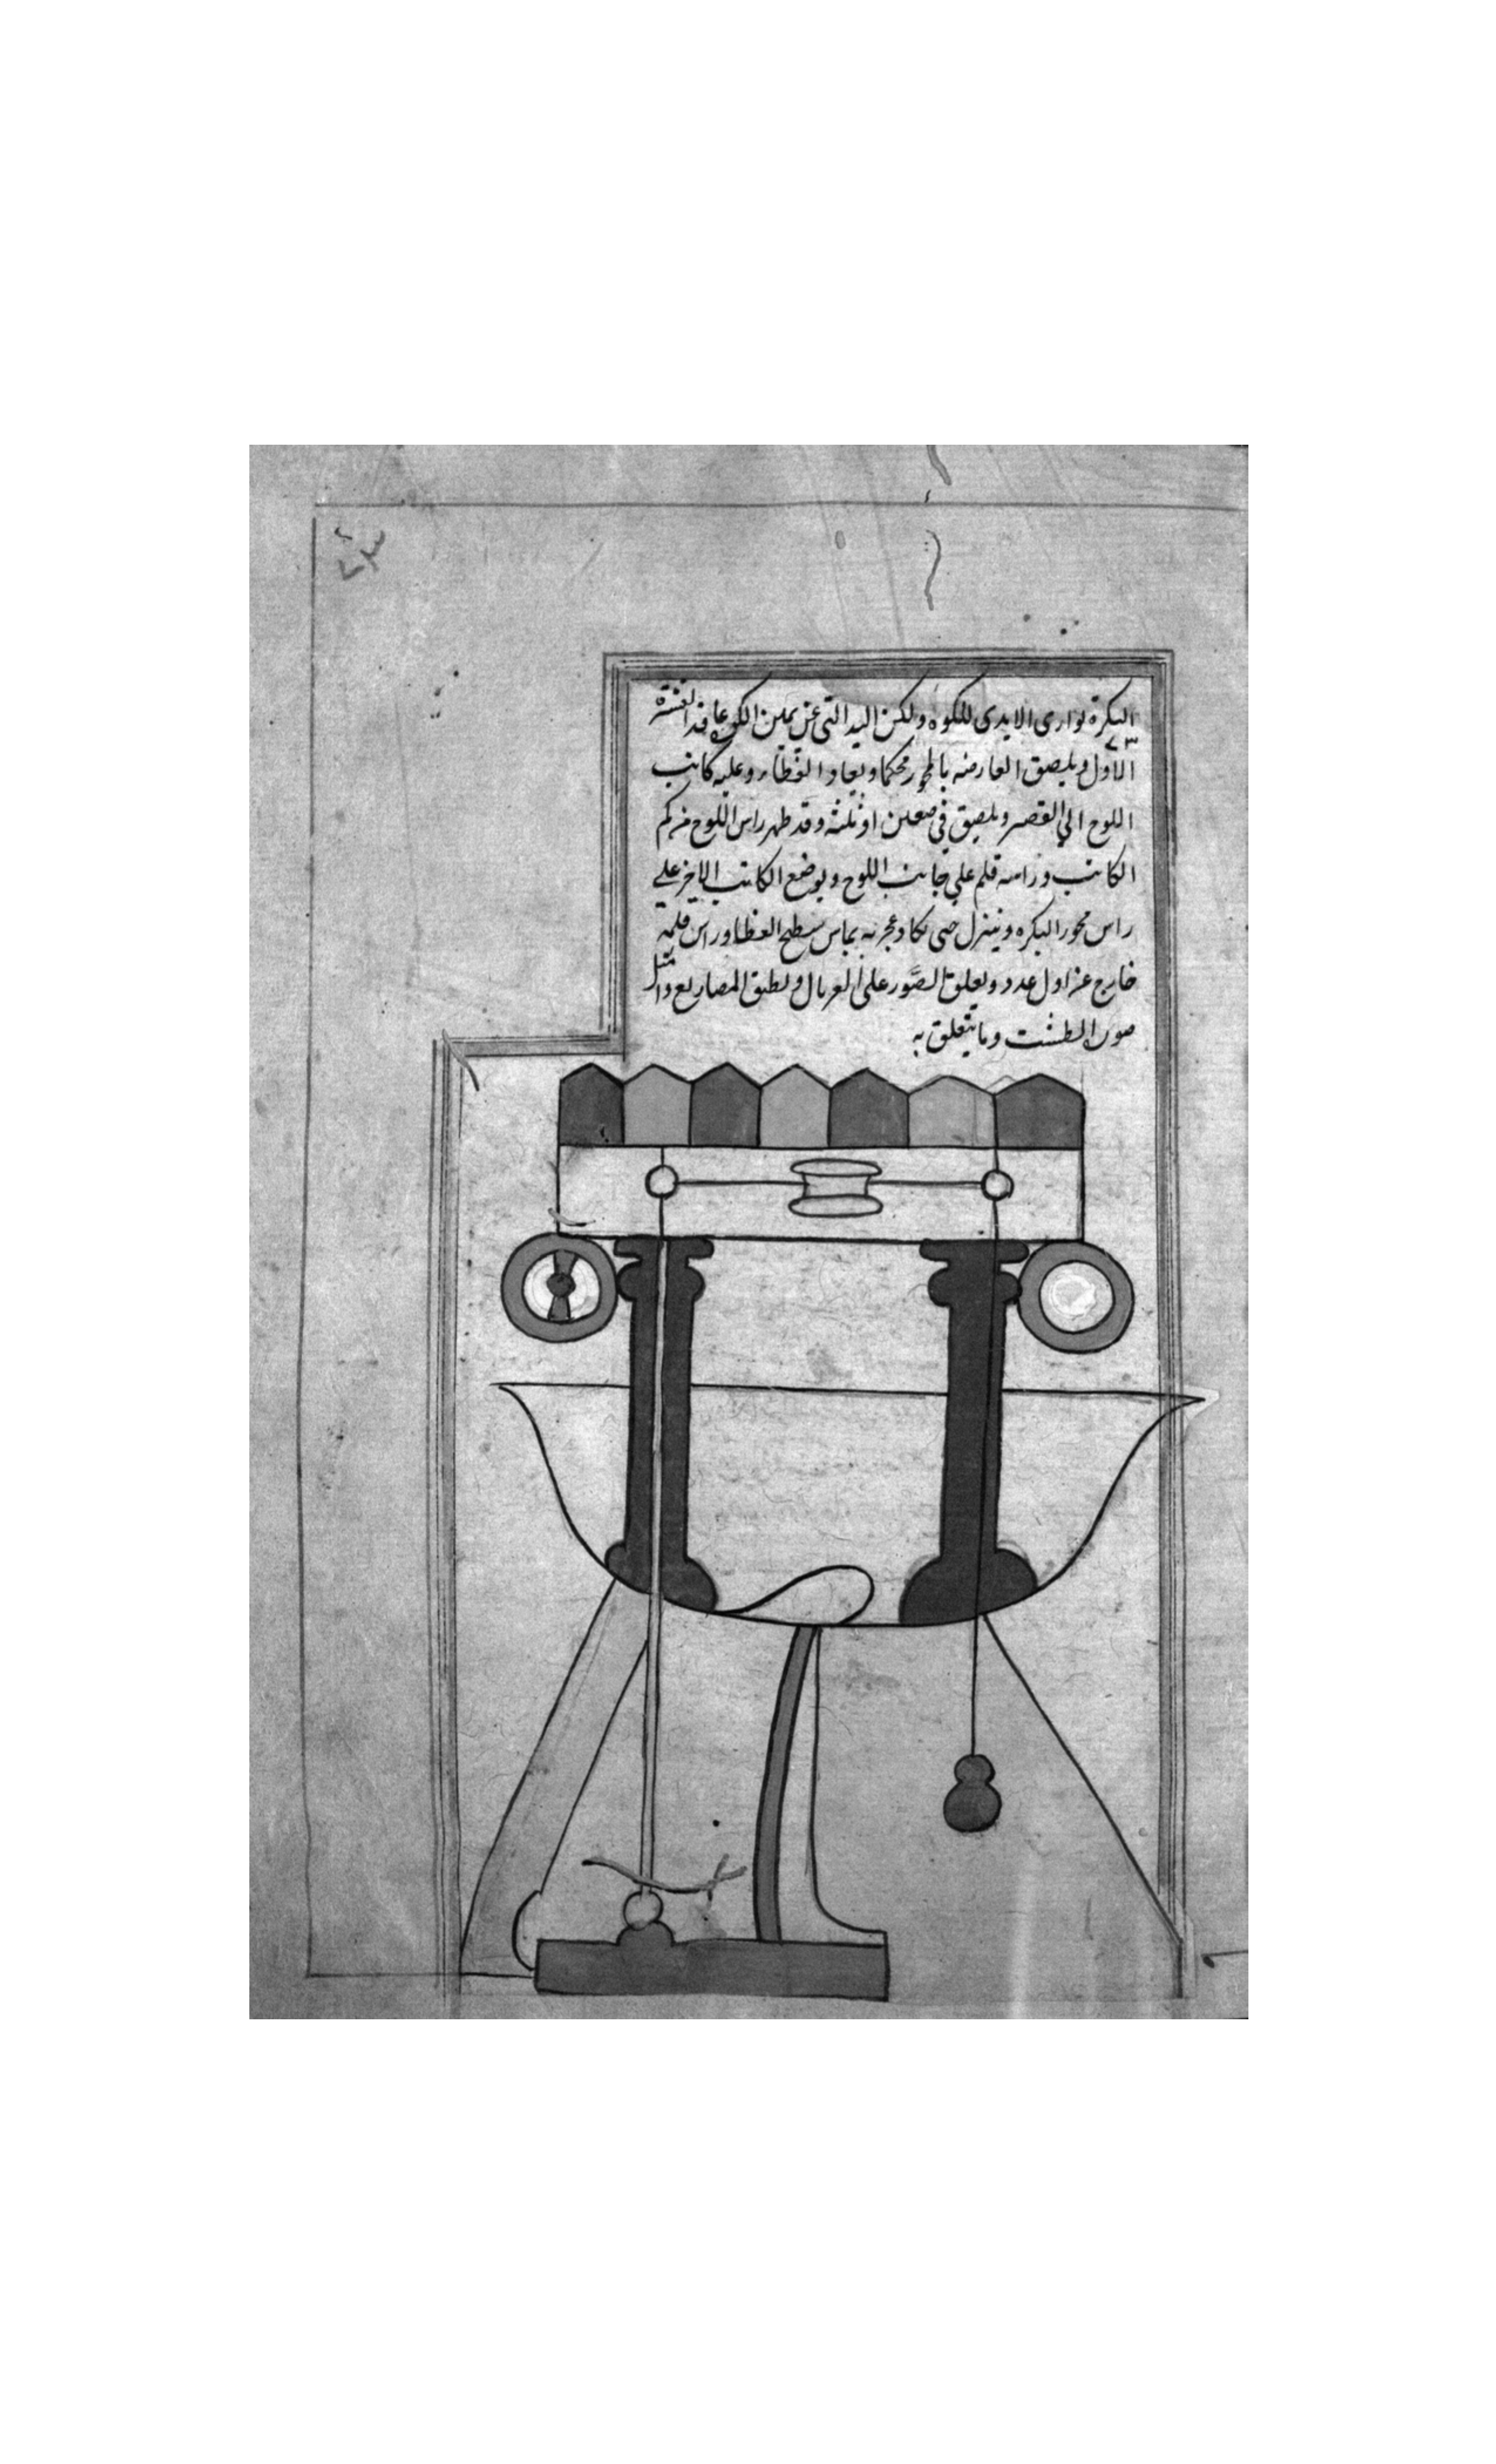 البكرة توارى الايدى للكوه ولكن اليد التى عن يمين الكوه
الاول ويلصق العارضه بالمحور محكما ويعاد الغطاء وعليه كاتب
اللوح الي القصر ويلصق في موضعين او ثلثه وقد ظهر راس اللوح من كم
الكاتب وراسه قلم علي جانب اللوح ويوضع الكاتب الاخر علي
راس محور البكره وينزل حتى تكاد عجزته يماس سطح الغطا وراس قلمه
خارج عن اول عدد وتعلق الصور على وتطبق المصاريع
صورة الطشت وما يتعلق به